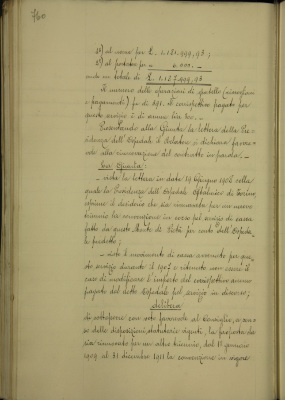 760
1°) al nome per L. 1.181.999,93;
2°) al portatore per " 6.000.—
onde un totale di L. 1.187.999,93
Il numero delle operazioni di sportello (riscossioni
e pagamenti) fu di 891. Il corrispettivo pagato per
questo servizio è di annue lire
Presentando alla Giunta la lettera della Pre-
sidenza dell'Ospedale il Relatore si dichiara favore-
vole alla rinnovazione del contratto in parola.
La Giunta:
— vista la lettera in data 19 Giugno 1908 colla
quale la Presidenza dell'Ospedale Oftalmico di Torino,
esprime il desiderio che sia rinnovata per un nuovo
biennio la convenzione in corso pel servizio di cassa
fatto da questo Monte di Pietà per conto dell'Ospeda-
le predetto;
— visto il movimento di cassa avvenuto per que-
sto servizio durante il 1907 e ritenuto non essere il
caso di modificare l'importo del corrispettivo annuo
pagato dal detto Ospedale pel servizio in discorso;
delibera
di sottoporre con voto favorevole al Consiglio, a sen-
so delle disposizioni statutarie vigenti, la proposta che
sia rinnovata per un altro biennio, dal 1° gennaio
1909 al 31 dicembre 1911 la convenzione in vigore